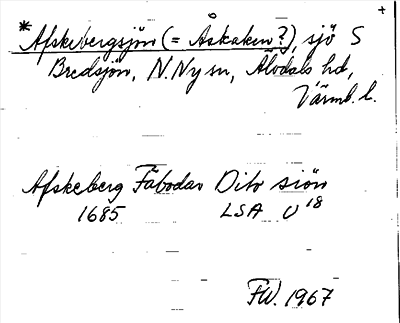 +
* Afskebergsjön (= Åskaken?), sjö S
Bredsjön, N. Ny sn, Älvdals hd,
Värml. l.
Afskeberg Fäbodar Dito siön
1685 LSA U 18
FW. 1967